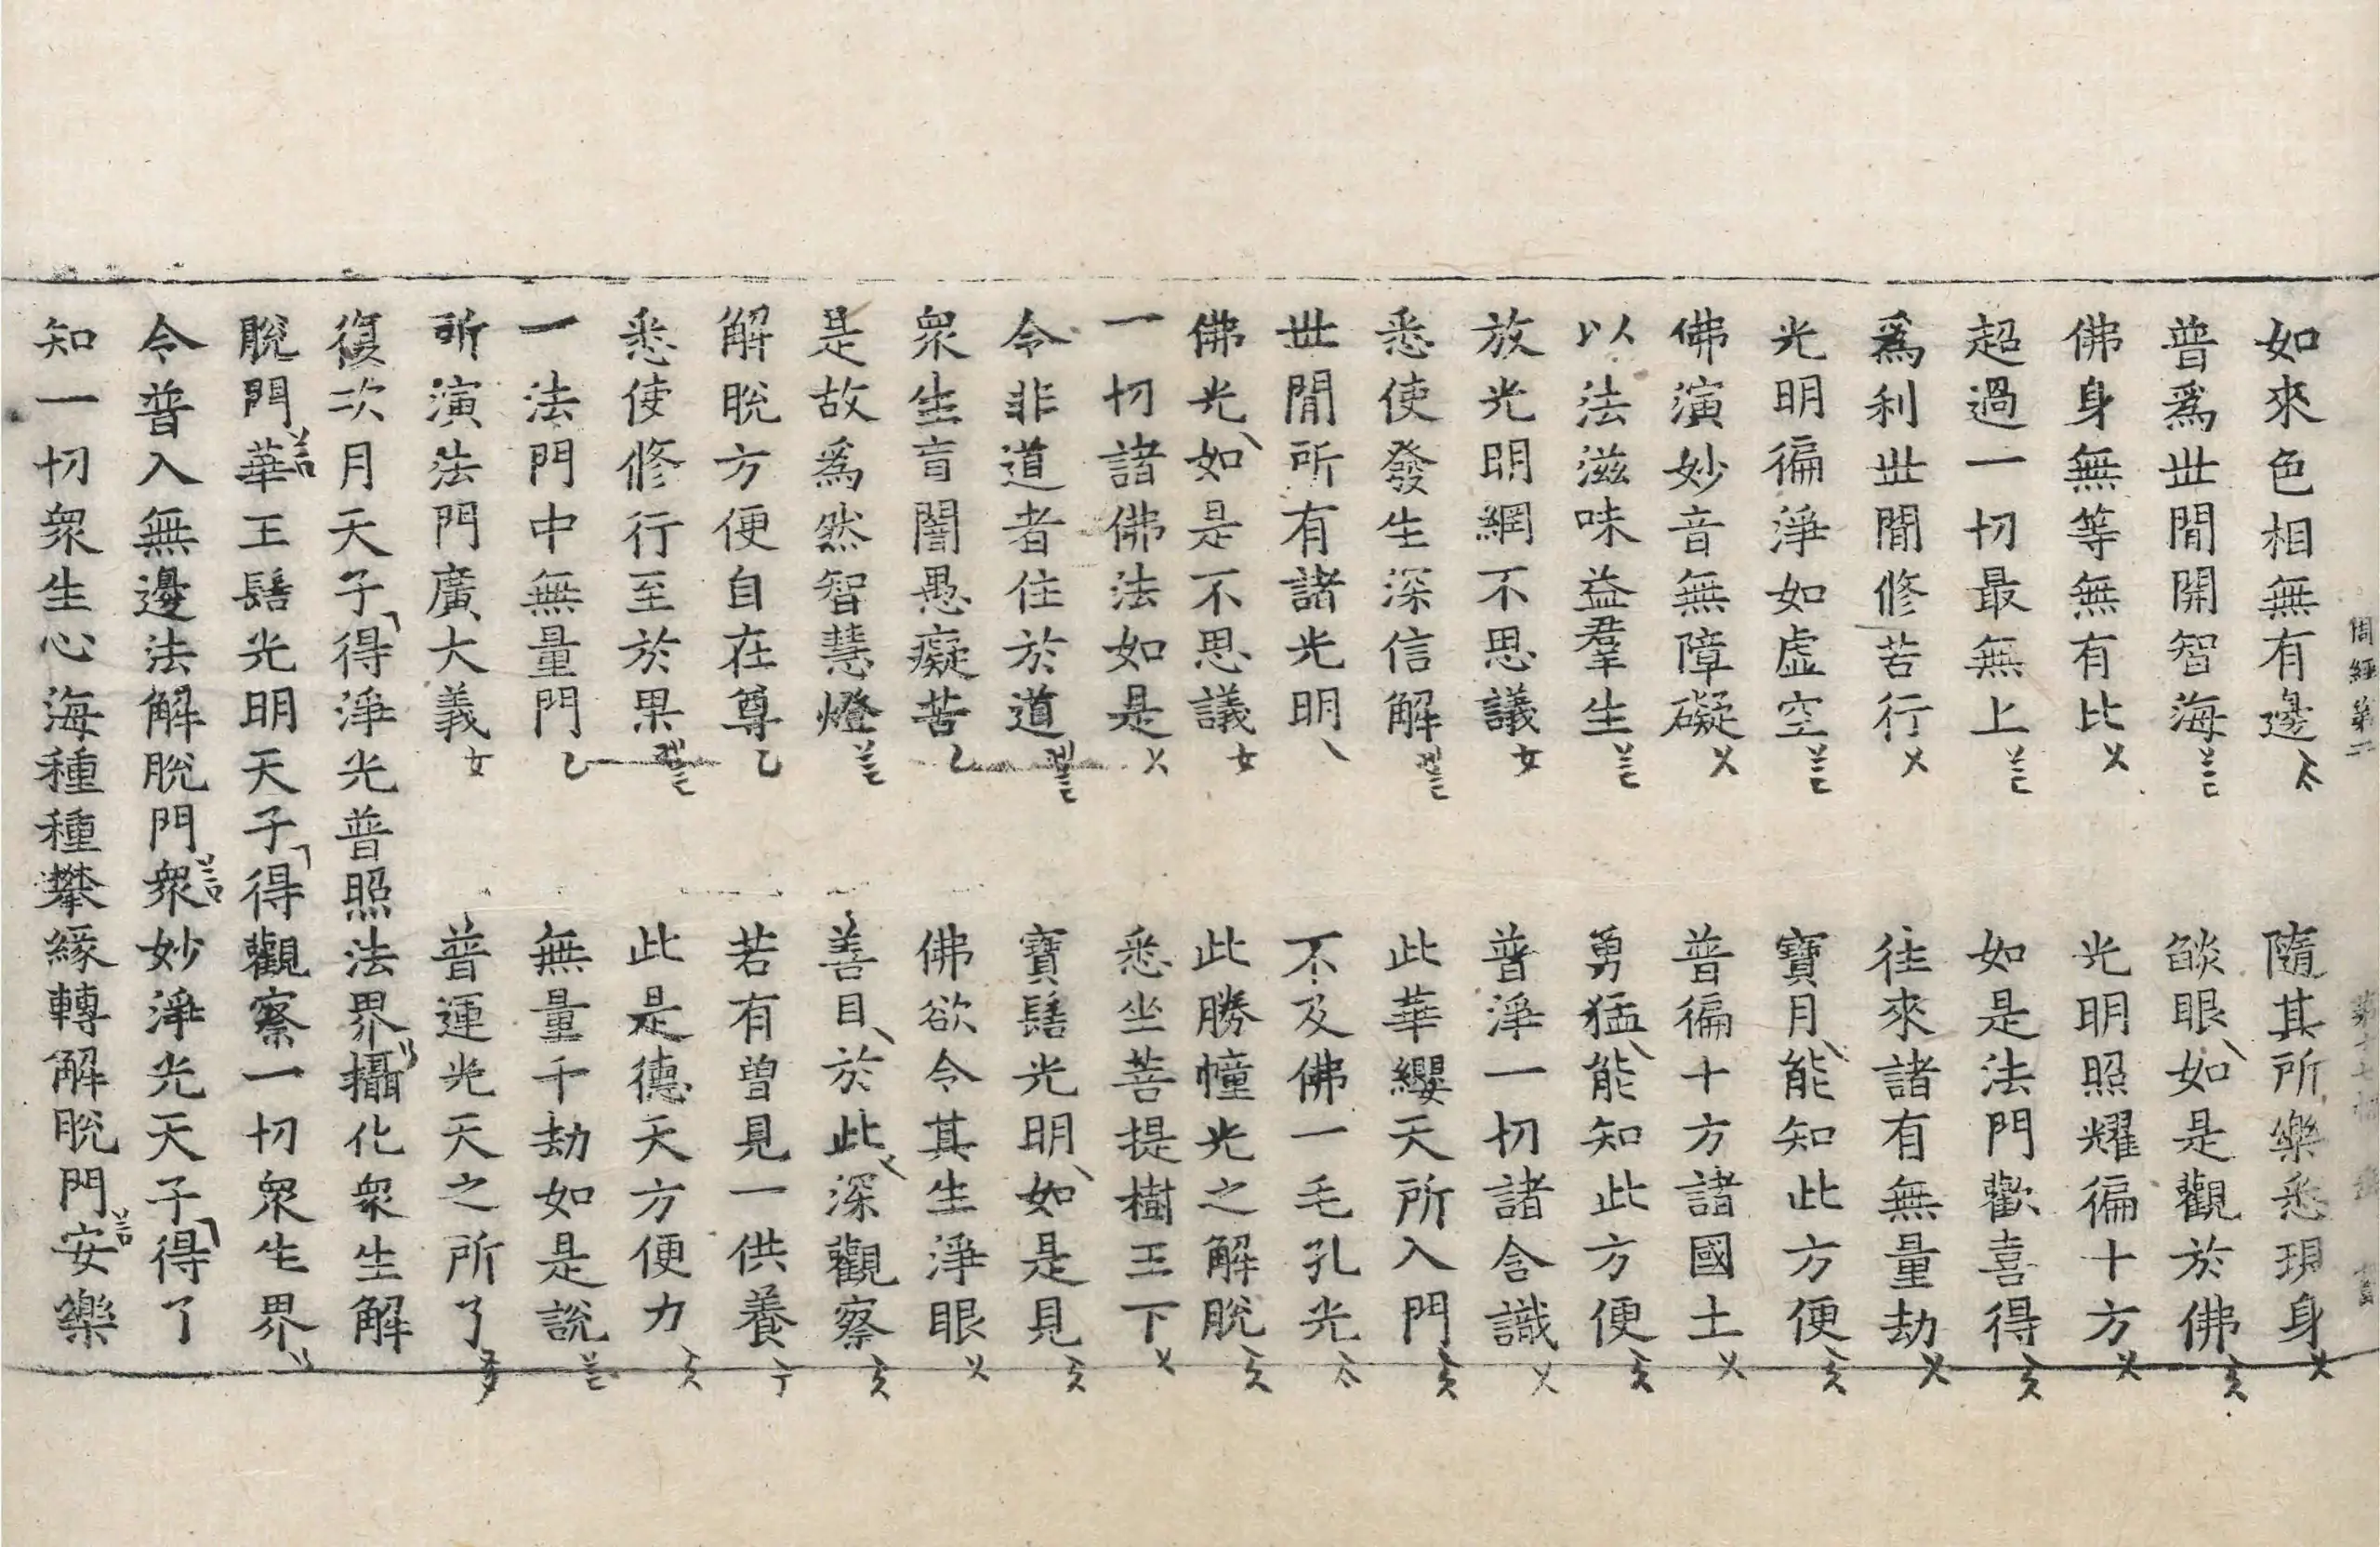 如來色相無有邊 隨其所樂悉現身
普爲世間開智海 焰眼如是觀於佛
佛身無等無有比 光明照耀徧十方
超過一切最無上 如是法門歡喜得
爲利世間修苦行 往來諸有無量劫
光明徧淨如虛空 寶月能知此方便
佛演妙音無障礙 普徧十方諸國土
以法滋味益羣生 勇猛能知此方便
放光明網不思議 普淨一切諸含識
悉使發生深信解 此華纓天所入門
世間所有諸光明 不及佛一毛孔光
佛光如是不思議 此勝幢光之解脫
一切諸佛法如是 悉坐菩提樹王下
令非道者住於道 寶髻光明如是見
衆生盲闇愚癡苦 佛欲令其生淨眼
是故爲然智慧燈 善目於此深觀察
解脫方便自在尊 若有曾見一供養
悉使修行至於果 此是德天方便力
一法門中無量門 無量千劫如是說
所演法門廣大義 普運光天之所了
復次月天子得淨光普照法界攝化衆生解
脫門華王髻光明天子得觀察一切衆生界
令普入無邊法解脫門衆妙淨光天子得了
知一切衆生心海種種攀緣轉解脫門安樂